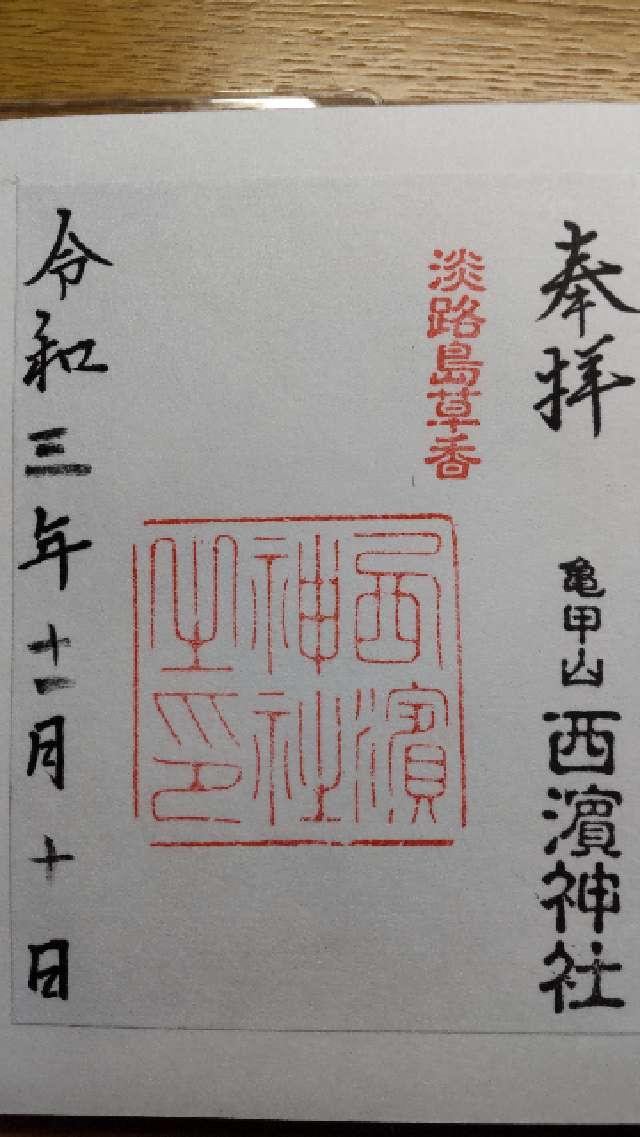 奉拝
亀甲山 西濵神社
淡路島草香
西濵
神社
之印
令和三年十一月十日